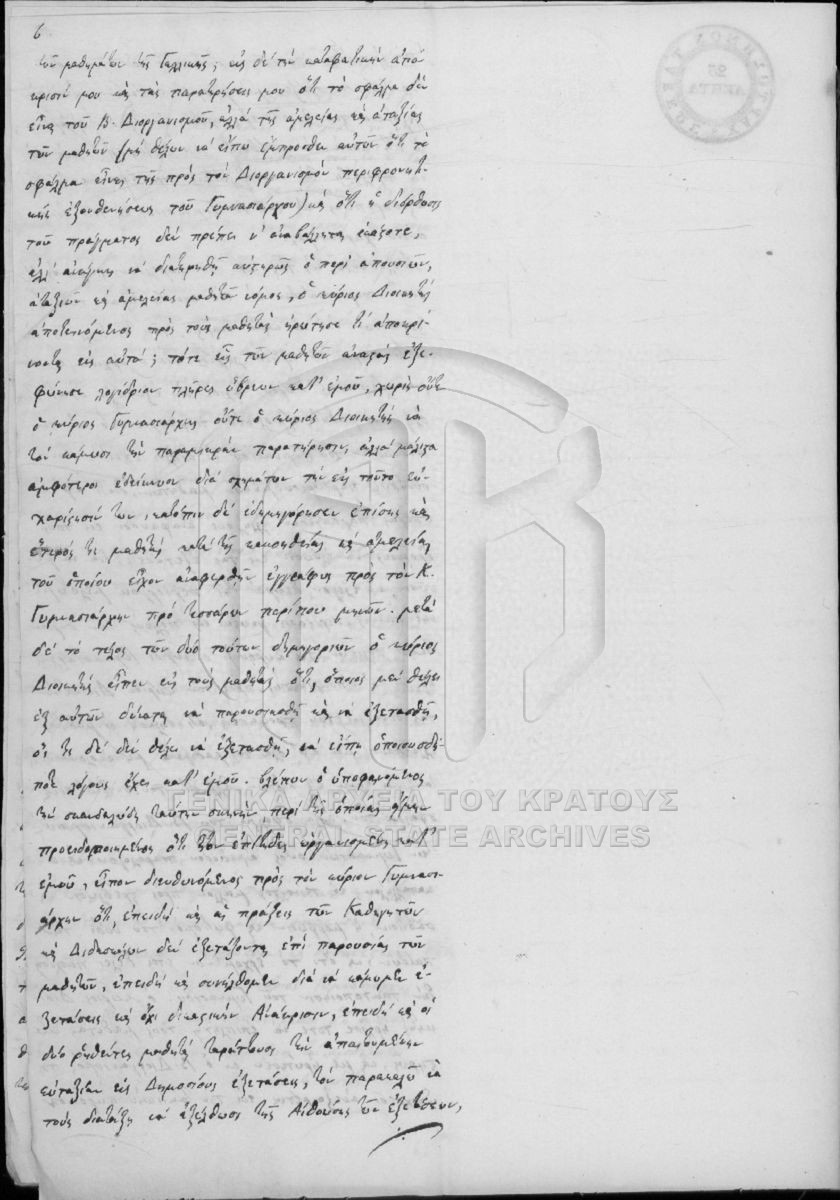 6
τῶν μαθημάτων τῆς Γαλλικῆς; εἰς δὲ τὴν καταφατικὴν ἀπό
κρισίν μου καὶ τὰς παρατηρήσεις μου ὅτι τὸ σφάλμα δὲν
εἶναι τοῦ Β. Διοργανισμοῦ, ἀλλὰ τῆς ἀμελείας καὶ ἀταξίας
τῶν μαθητῶν (μὴ θέλων νὰ εἴπω ἔμπροσθεν αὐτῶν ὅτι τὸ
σφάλμα εἶναι τῆς πρὸς τὸν Διοργανισμὸν περιφρονητι-
κῆς ἐξουθενήσεως τοῦ Γυμνασιάρχου) καὶ ὅτι ἡ διόρθωσις
τοῦ πράγματος δὲν πρέπει ν' ἀναβάλληται ἑκάστοτε,
ἀλλ' ἀνάγκη νὰ διατηρηθῇ αὐστηρῶς ὁ περὶ ἀπουσιῶν,
ἀταξιῶν καὶ ἀμελείας μαθητῶν νόμος, ὁ κύριος Διοικητὴς
ἀποτεινόμενος πρὸς τοὺς μαθητὰς ἠρώτησε τί ἀποκρί-
νονται εἰς αὐτά; τότε εἷς τῶν μαθητῶν ἀναστὰς ἐξε-
φώνησε λογίδριον πλῆρες ὕβρεων κατ' ἐμοῦ, χωρὶς οὔτε
ὁ κύριος Γυμνασιάρχης οὔτε ὁ κύριος Διοικητὴς νὰ
τοῦ κάμωσι τὴν παραμικρὰν παρατήρησιν, ἀλλὰ μάλιστα
ἀμφότεροι ἐδείκνυον διὰ σχημάτων τὴν εἰς τοῦτο εὐ-
χαρίστησίν των, κατόπιν δὲ ἐδημηγόρησεν ἐπίσης καὶ
ἕτερός τις μαθητὴς κατὰ τῆς κακοηθείας καὶ ἀμελείας
τοῦ ὁποίου εἶχον ἀναφερθῆν ἐγγράφως πρὸς τὸν Κ.
Γυμνασιάρχην πρὸ τεσσάρων περίπου μηνῶν. μετὰ
δὲ τὸ τέλος τῶν δύο τούτων δημηγοριῶν ὁ κύριος
Διοικητὴς εἶπεν εἰς τοὺς μαθητὰς ὅτι, ὅποιος μὲν θέλει
ἐξ αὐτῶν δύναται νὰ παρουσιασθῇ καὶ νὰ ἐξετασθῇ,
ὅστις δὲ δὲν θέλει νὰ ἐξετασθῇ, νὰ εἴπῃ ὁποιουσδή-
ποτε λόγους ἔχει κατ' ἐμοῦ. βλέπων ὁ ὑποφαινόμενος
τὴν σκανδαλώδη ταύτην σκηνὴν, περὶ τῆς ὁποίας ἤμην
προειδοποιημένος ὅτι ἦτον ἐπίτηδες ὠργανισμένη κατ'
ἐμοῦ, εἶπον διευθυνόμενος πρὸς τὸν κύριον Γυμνασι-
άρχην ὅτι, ἐπειδὴ καὶ αἱ πράξεις τῶν Καθηγητῶν
καὶ Διδασκάλων δὲν ἐξετάζονται ἐπὶ παρουσίας τῶν
μαθητῶν, ἐπειδὴ καὶ συνήλθομεν διὰ νὰ κάμωμεν ἐ-
ξετάσεις καὶ ὄχι δικαστικὴν Ἀνάκρισιν, ἐπειδὴ καὶ οἱ
δύο ῥηθέντες μαθηταὶ ταράττουσι τὴν ἀπαιτουμένην
εὐταξίαν εἰς Δημοσίους ἐξετάσεις, τὸν παρακαλῶ νὰ
τοὺς διατάξῃ νὰ ἐξέλθωσι τῆς Αἰθούσης τῶν ἐξετάσεων,
ΓΕΝΙΚΑ ΑΡΧΕΙΑ ΤΟΥ ΚΡΑΤΟΥΣ
GENERAL STATE ARCHIVES